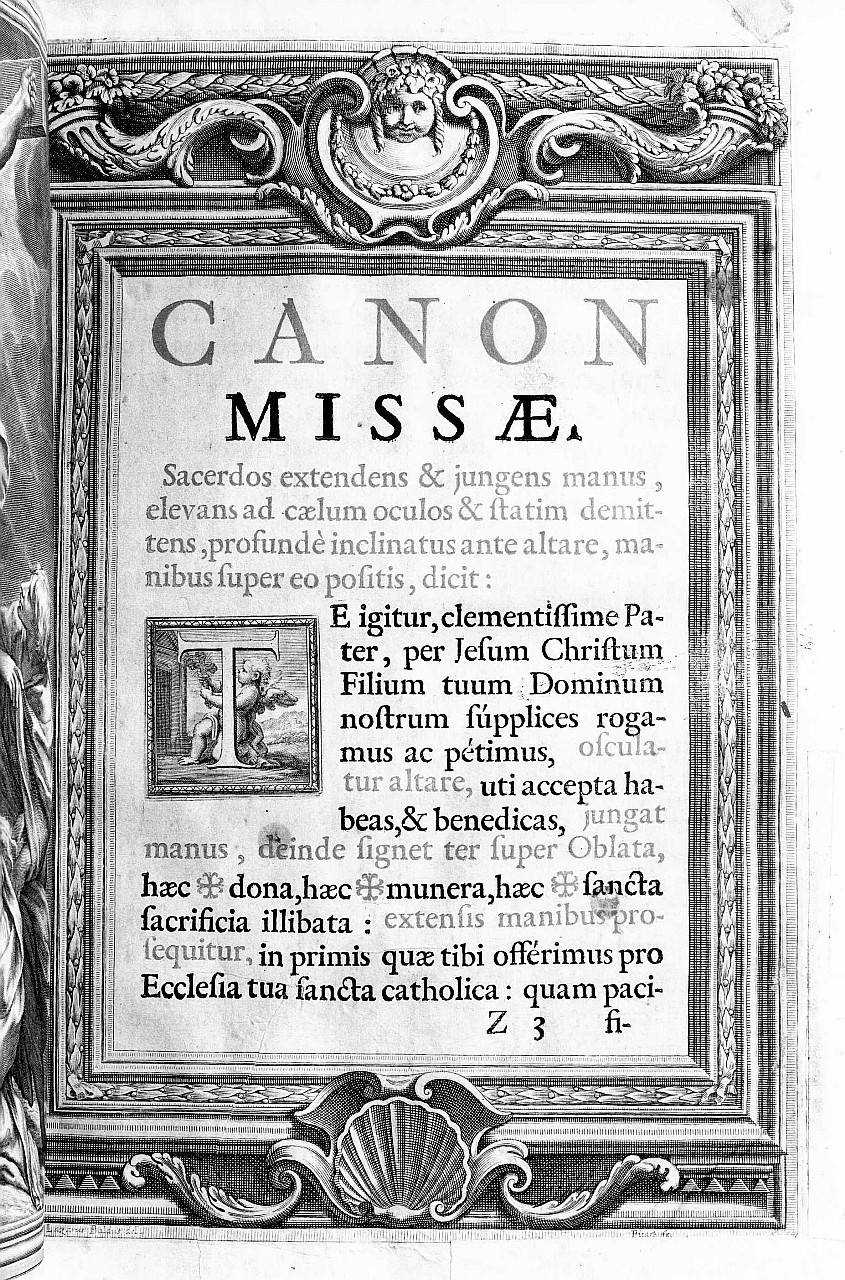 CANON
MISSÆ.
Sacerdos extendens & jungens manus,
elevans ad cælum oculos & ſtatim demit-
tens, profundè inclinatus ante altare, ma-
nibus ſuper eo poſitis, dicit:
TE igitur, clementiſſime Pa-
ter, per Jeſum Chriſtum
Filium tuum Dominum
noſtrum ſúpplices roga-
mus ac pétimus, oſcula-
tur altare, uti accepta ha-
beas, & benedicas, jungat
manus, deinde ſignet ter ſuper Oblata,
hæc ✠ dona, hæc ✠ munera, hæc ✠ ſancta
ſacrificia illibata : extenſis manibus pro-
ſequitur, in primis quæ tibi offérimus pro
Eccleſia tua ſancta catholica : quam paci-
Z 3 fi-